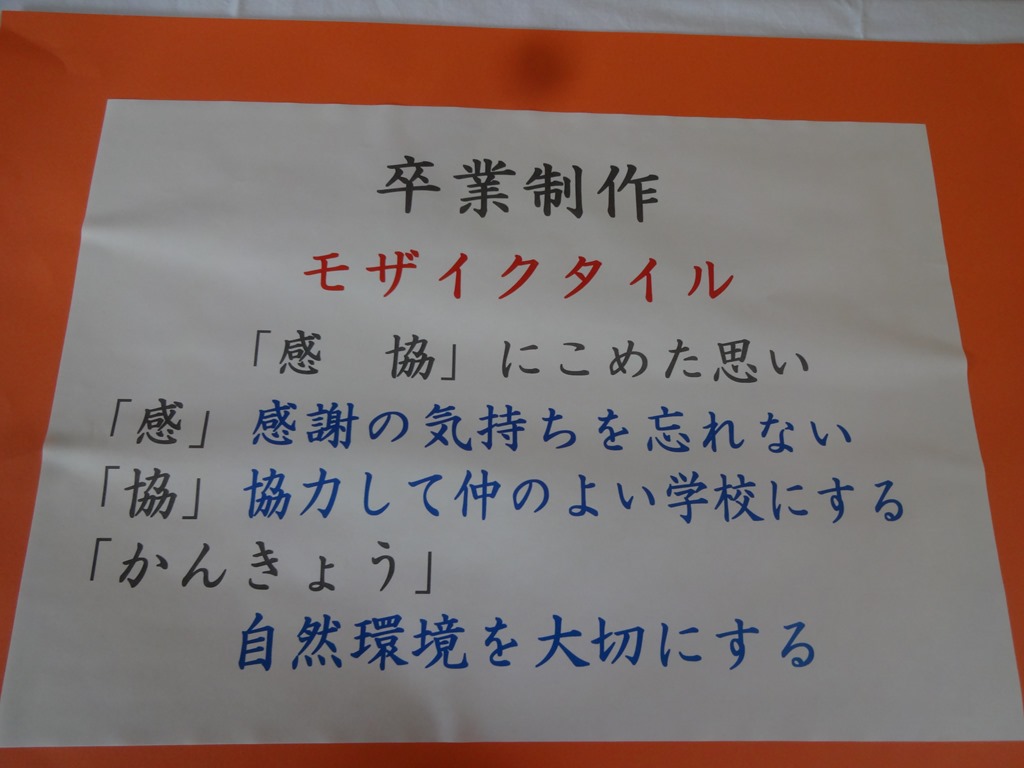 卒業制作
モザイクタイル
「感　協」にこめた思い
「感」感謝の気持ちを忘れない
「協」協力して仲のよい学校にする
「かんきょう」
自然環境を大切にする